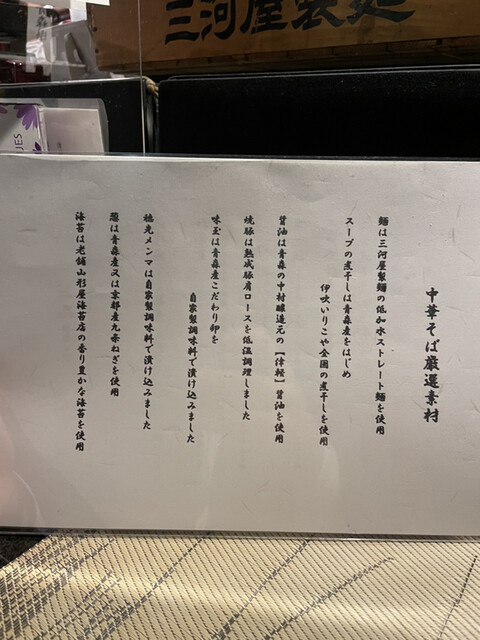 三河屋製麺
JES
中華そば厳選素材
麺は三河屋製麺の低加水ストレート麺を使用
スープの煮干しは青森産をはじめ
伊吹いりこや全国の煮干しを使用
醤油は青森の中村醸造元の【津軽】醤油を使用
焼豚は熟成豚肩ロースを低温調理しました
味玉は青森産こだわり卵を
自家製調味料で漬け込みました
穂先メンマは自家製調味料で漬け込みました
葱は青森産又は京都産九条ねぎを使用
海苔は老舗山形屋海苔店の香り豊かな海苔を使用